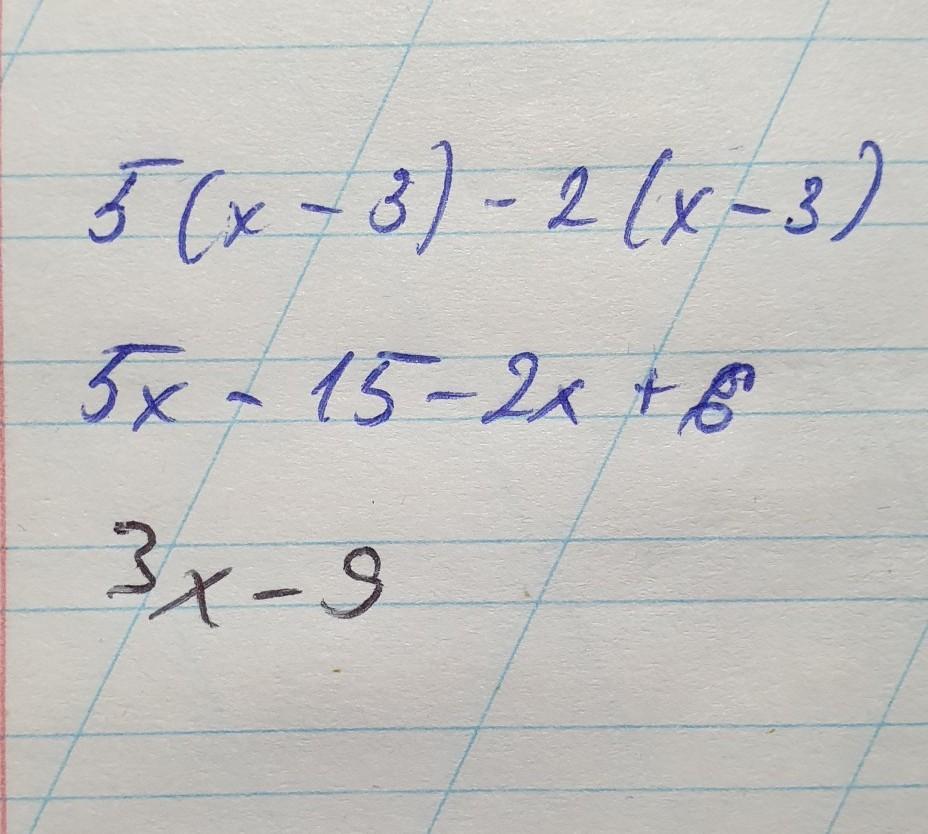 5(x - 3) - 2(x - 3)
5x - 15 - 2x + 6
3x - 9